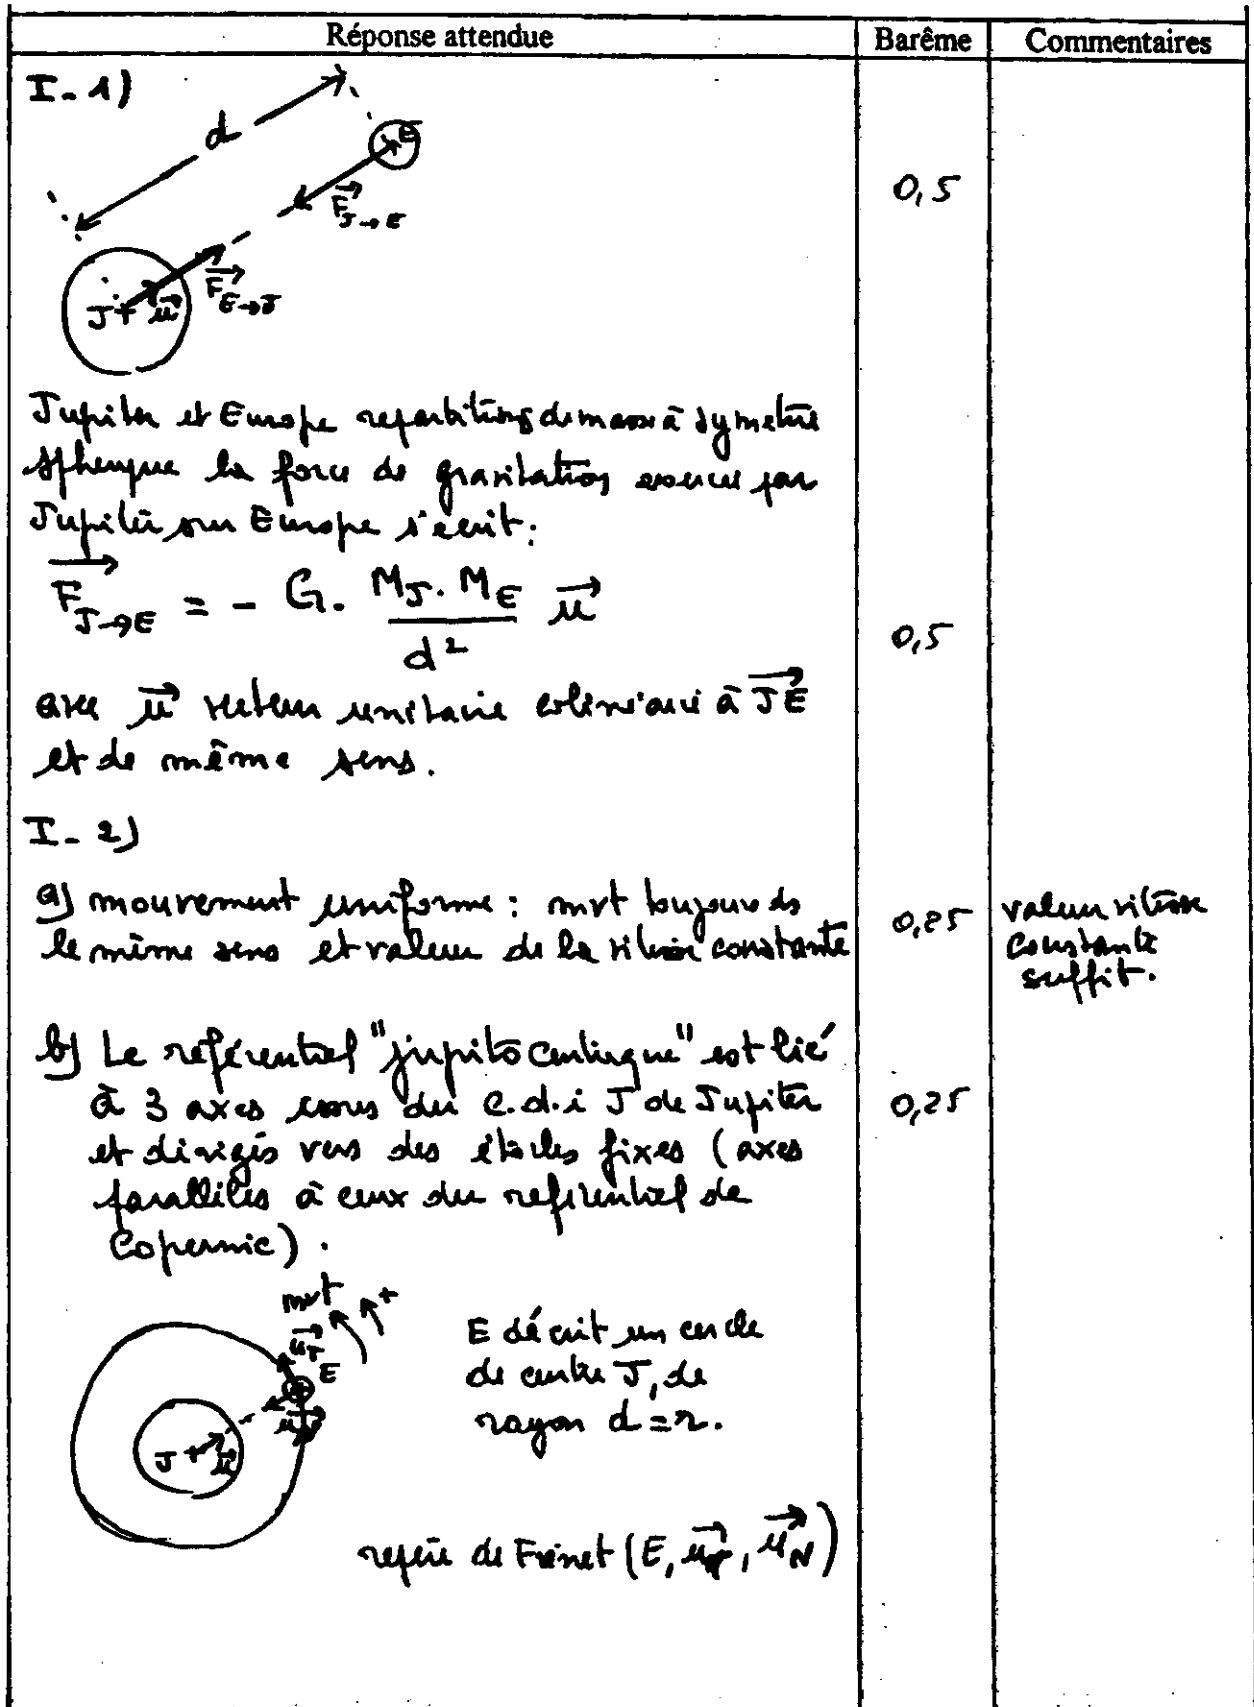 Réponse attendue Barême Commentaires
I-1)
d
E
F J→E
0,5
F E→J
J u
Jupiter et Europe répartitions de masse à symétrie
sphérique la force de gravitation exercée par
Jupiter sur Europe s'écrit :
F J→E = - G. M_J. M_E / d² u
0,5
avec u vecteur unitaire colinéaire à JE
et de même sens.
I-2)
a) mouvement uniforme : mvt toujours ds
le même sens et valeur de la vitesse constante
0,25
valeur vitesse
constante
suffit.
b) Le référentiel "jupitocentrique" est lié
à 3 axes issus du c.d.i J de Jupiter
0,25
et dirigés vers des étoiles fixes (axes
parallèles à ceux du référentiel de
Copernic).
mvt +
u_T
E
u_N
J u
E décrit un cercle
de centre J, de
rayon d = r.
repère de Frénet (E, u_T, u_N)